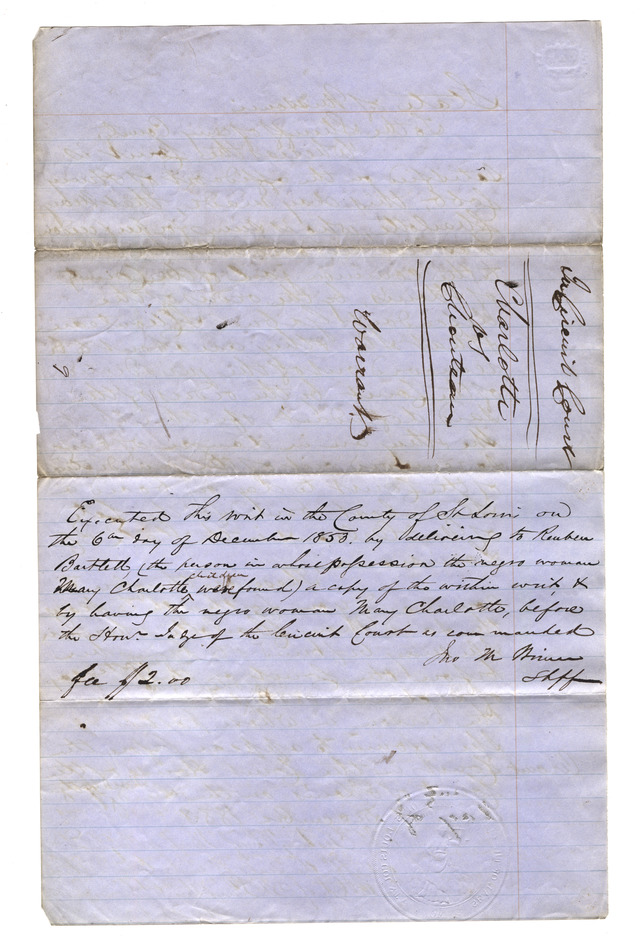 In Circuit Court
Charlotte
vs
Chouteau
Warrant
9
Executed this writ in the County of St Louis on
the 6th day of December 1853. by delivering to Reuben
Bartlett (the person in whose possession the negro woman
children
Mary Charlotte, was found) a copy of the within writ, &
by having the negro woman Mary Charlotte, before
the Honr. Judge of the Circuit Court as commanded
Jno M
Shff
fee $2.00